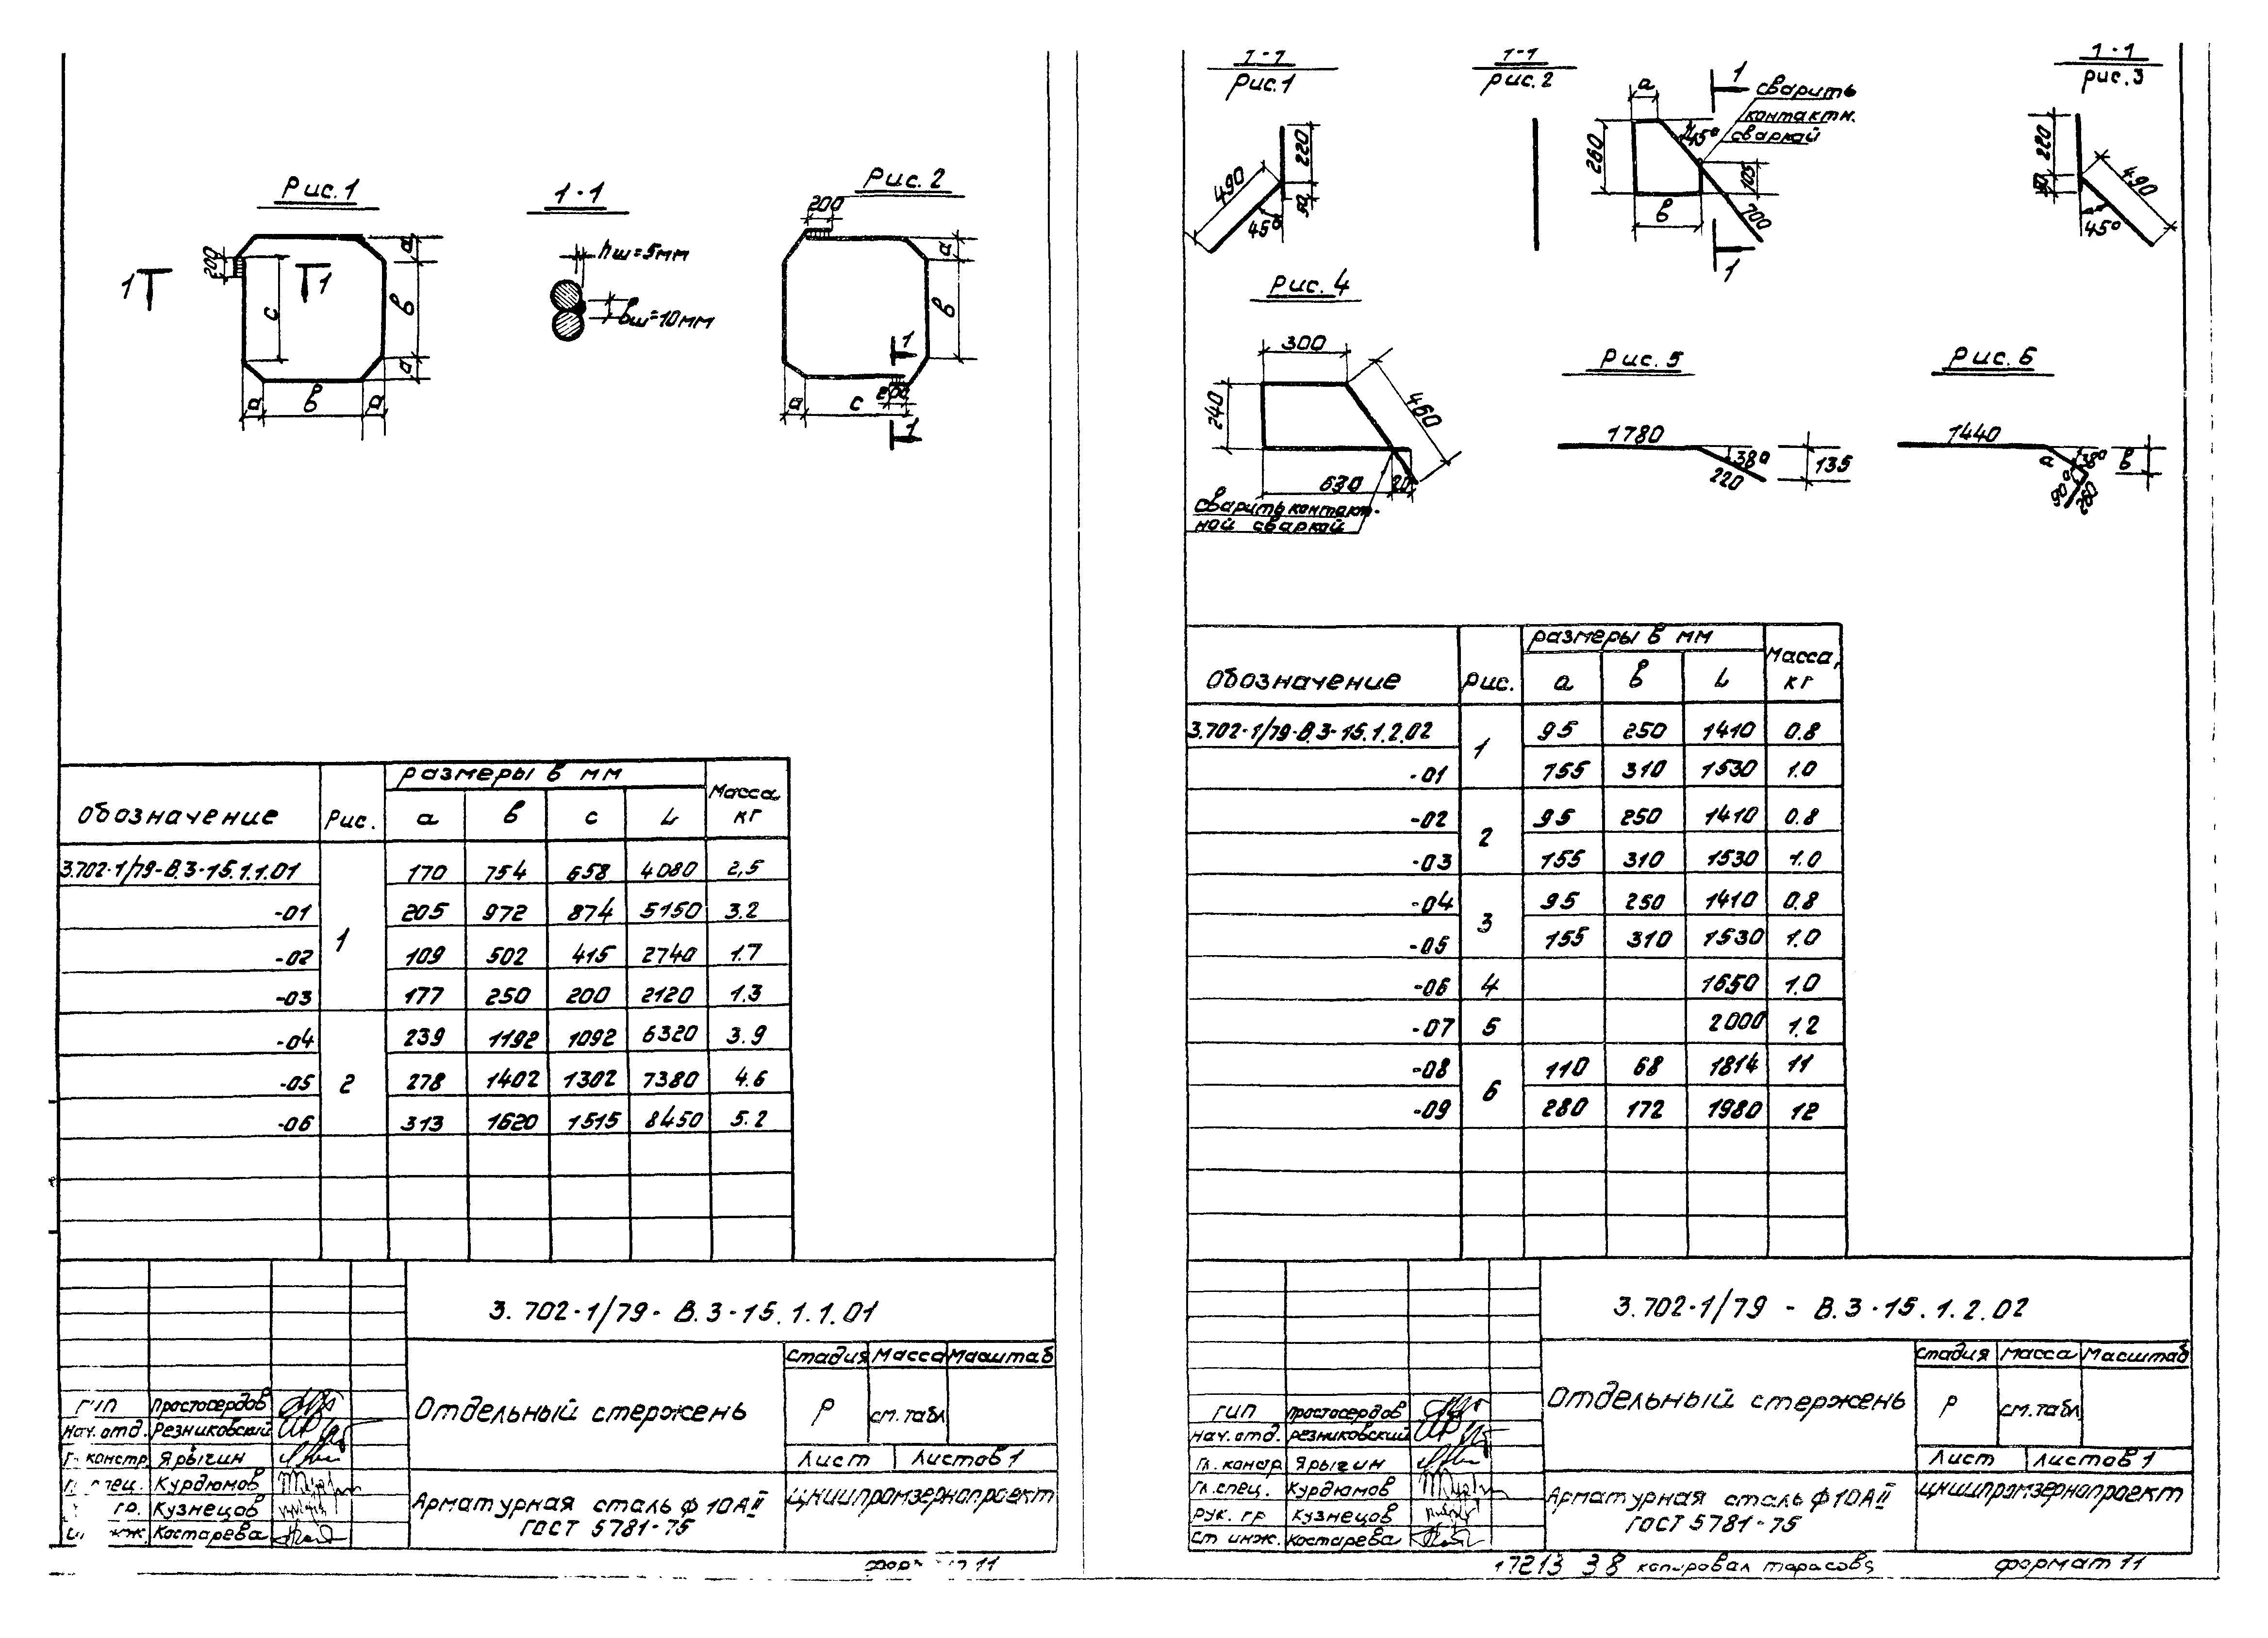 Рис.1
1-1
Рис. 2
200
200
1
1
a
в
c
a
a
в
a
hш=5мм
вш=10мм
a
в
1
200
a
c
1
обозначение
Рис.
размеры в мм
Масса
кг
a
в
c
L
3.702-1/79-В.3-15.1.1.01
1
170
754
658
4080
2,5
-01
205
972
874
5150
3.2
-02
109
502
415
2740
1.7
-03
177
250
200
2120
1.3
-04
2
239
1192
1092
6320
3.9
-05
278
1402
1302
7380
4.6
-06
313
1620
1515
8450
5.2
3.702-1/79-В.3-15.1.1.01
Отдельный стержень
Стадия
Масса
Масштаб
Р
см.табл
Лист
Листов 1
Простосердов
нач.отд.
Резниковский
констр
Ярыгин
Курдюмов
гр.
Кузнецов
Костарева
Арматурная сталь ф10АII
ГОСТ 5781-75
ЦНИИпромзернопроект
1-1
Рис.1
1-1
Рис.2
1-1
рис.3
490
220
50
45°
a
1
сварить
контактн.
сваркой
45°
260
105
в
700
1
220
50
490
45°
Рис. 4
300
240
460
630
20
Сварить контакт-
ной сваркой
Рис. 5
1780
38°
220
135
Рис. 6
1440
a
38°
в
90°
260
обозначение
Рис.
размеры в мм
Масса,
кг
a
в
L
3.702-1/79-В.3-15.1.2.02
1
95
250
1410
0.8
-01
155
310
1530
1.0
-02
2
95
250
1410
0.8
-03
155
310
1530
1.0
-04
3
95
250
1410
0.8
-05
155
310
1530
1.0
-06
4
1650
1.0
-07
5
2000
1.2
-08
6
110
68
1814
11
-09
280
172
1980
12
3.702-1/79 - В.3-15.1.2.02
Отдельный стержень
Стадия
Масса
Масштаб
Р
см.табл
Лист
Листов 1
ГИП
Простосердов
нач.отд.
Резниковский
Гл.констр
Ярыгин
Гл.спец.
Курдюмов
рук. гр
Кузнецов
Ст инж.
Костарева
Арматурная сталь ф10АII
ГОСТ 5781-75
ЦНИИпромзернопроект
17213 38 копировал Тарасова
формат 11